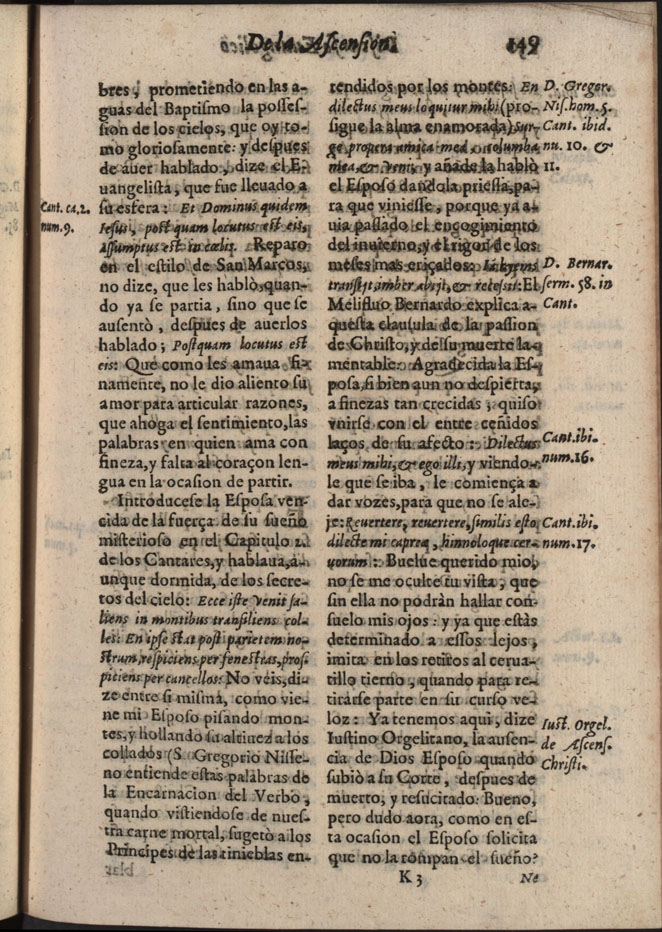 De la Ascension. 149
bres, prometiendo en las a-
guas del Baptismo la posses-
sion de los cielos, que oy to-
mo gloriosamente: y despues
de auer hablado, dize el E-
uangelista, que fue lleuado a
su esfera: Et Dominus quidem
Iesus, postquam locutus est eis,
assumptus est in cœlis. Reparo
en el estilo de San Marcos,
no dize, que les hablò, quan-
do ya se partia, sino que se
ausentò, despues de auerlos
hablado; Postquam locutus est
eis: Que como les amaua fi-
namente, no le dio aliento su
amor para articular razones,
que ahoga el sentimiento, las
palabras en quien ama con
fineza, y falta al coraçon len-
gua en la ocasion de partir.
Introducese la Esposa ven-
cida de la fuerça de su sueño
misterioso en el Capitulo 2.
de los Cantares, y hablaua, a-
unque dormida, de los secre-
tos del cielo: Ecce iste venit sa-
liens in montibus transiliens col-
les: En ipse stat post parietem no-
strum, respiciens per fenestras, prosi
piciens per cancellos: No veis, di-
ze entre si misma, como vie-
ne mi Esposo pisando mon-
tes, y hollando su altiuez a los
collados (S. Gregorio Nisse-
no entiende estas palabras de
la Encarnacion del Verbo,
quando vistiendose de nues-
tra carne mortal, sugetò a los
Principes de las tinieblas en-
Cant. ca. 2.
num. 9.
tendidos por los montes: En
dilectus meus loquitur mihi (pro-
sigue la alma enamorada) sur-
ge, propera amica mea, columba
mea, & veni, y añade la hablò
el Esposo dandola priessa, pa-
ra que viniesse, porque ya a-
uia passado el encogimiento
del inuierno, y el rigor de los
meses mas eriçados: Iam hyems
transijt, imber abijt, & recessit: El
Melifluo Bernardo explica a-
questa clausula de la passion
de Christo, y de su muerte la-
mentable: Agradecida la Es-
posa, si bien aun no despierta,
a finezas tan crecidas, quiso
vnirse con el entre ceñidos
laços de su afecto: Dilectus
meus mihi, & ego illi, y viendo-
le que se iba, le comiença a
dar vozes, para que no se ale-
je: Reuertere, reuertere, similis esto
dilecte mi capreæ, hinnuloque cer-
uorum: Buelue querido mio,
no se me oculte tu vista, que
sin ella no podràn hallar con-
suelo mis ojos: y ya que estàs
determinado a essos lejos,
imita en los retiros al cerua-
tillo tierno, quando para re-
tirarse parte en su curso ve-
loz: Ya tenemos aqui, dize
Iustino Orgelitano, la ausen-
cia de Dios Esposo quando
subiò a su Corte, despues de
muerto, y resucitado: Bueno,
pero dudo aora, como en es-
ta ocasion el Esposo solicita
que no la rompan el sueño?
D. Gregor.
Nis. hom. 5.
Cant. ibid.
nu. 10. &
11.
D. Bernar.
serm. 58. in
Cant.
Cant. ibi.
num. 16.
Cant. ibi.
num. 17.
Iust. Orgel.
de Ascens.
Christi.
K 3 Ne